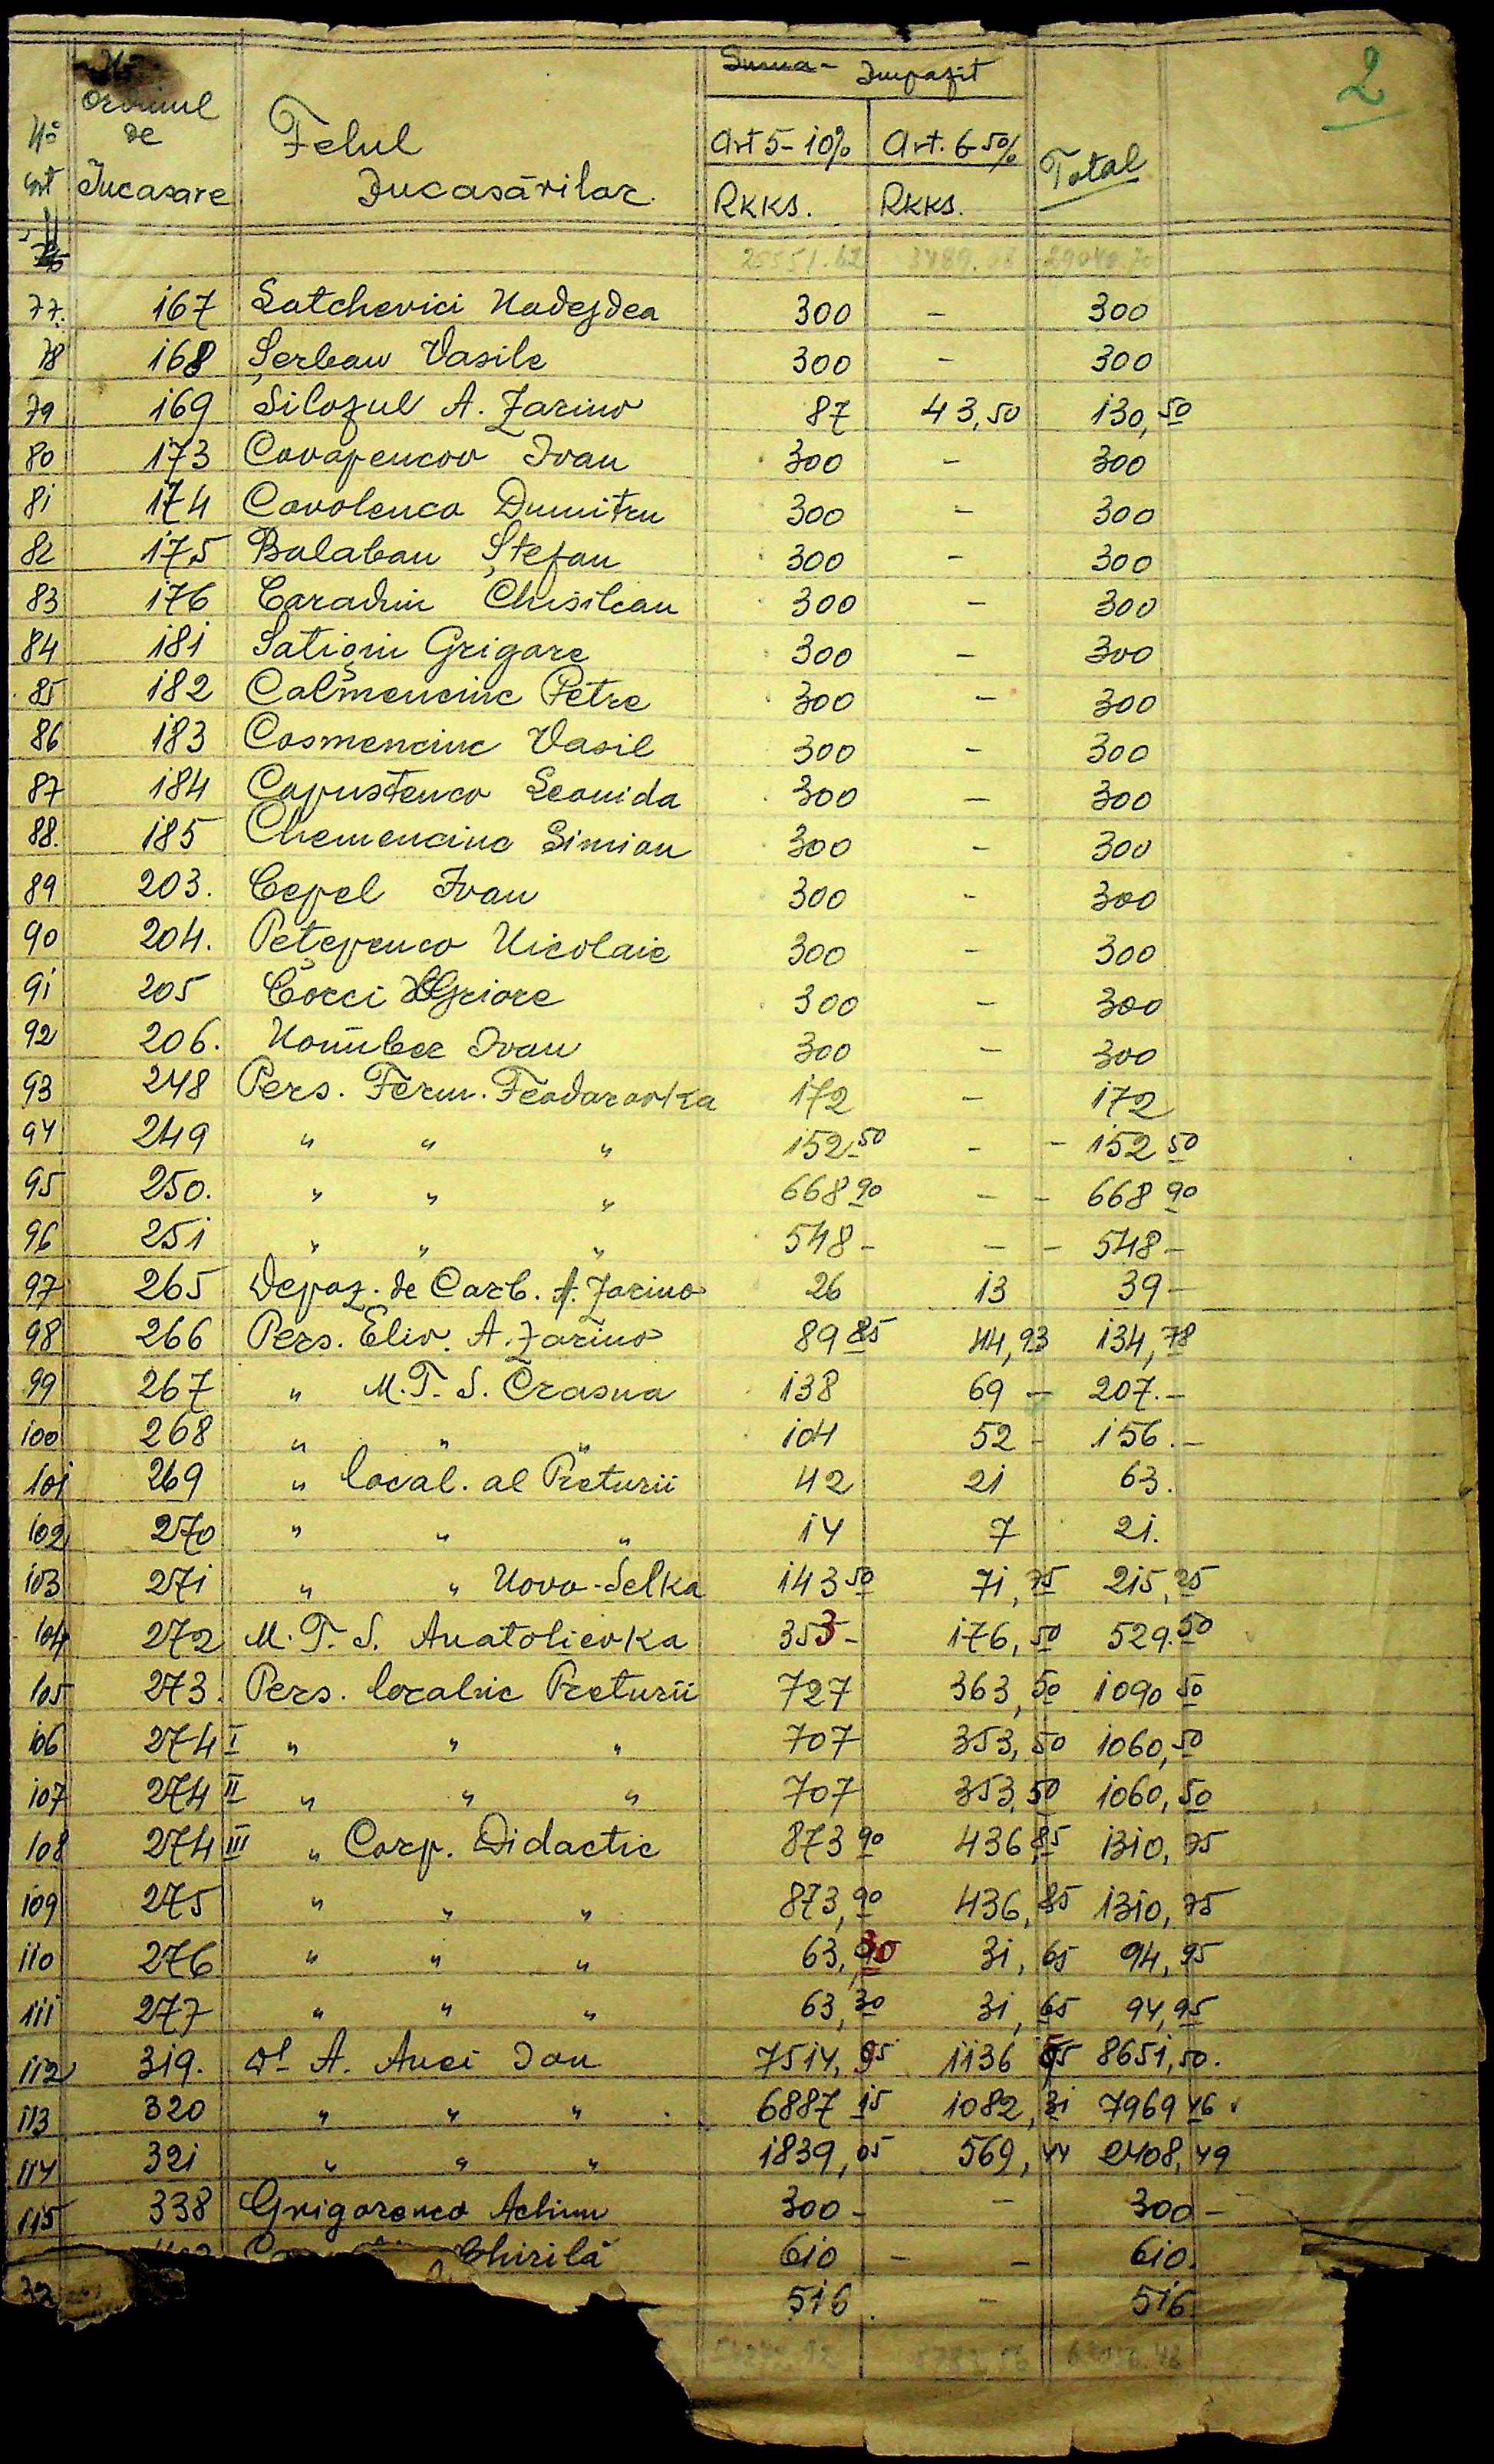 2
Ordinul de Incasare
No crt
Felul Incasărilor
Suma - Impozit
Art 5 - 10% Art. 6 50% Total
RKKS. RKKS.
77. 167 Satchevici Nadejdea 300 - 300
78 168 Șerban Vasile 300 - 300
79 169 Silozul A. Zarino 87 43,50 130,50
80 173 Covapencov Ivan 300 - 300
81 174 Covolenco Dumitru 300 - 300
82 175 Balaban Ștefan 300 - 300
83 176 Caradin 300 - 300
84 181 Grigore 300 - 300
85 182 Petre 300 - 300
86 183 Cosmenciuc Vasil 300 - 300
87 184 Capustenco Leonida 300 - 300
88. 185 Chemenciuc Simion 300 - 300
89 203. Cepel Ivan 300 - 300
90 204. Nicolaie 300 - 300
91 205 300 - 300
92 206. Ivan 300 - 300
93 248 Pers. Ferm. Feodorovka 172 - 172
94 249 " " " 152 50 - - 152 50
95 250. " " " 668 90 - - 668 90
96 251 " " " 548 - - - 548 -
97 265 Depoz. de Carb. A. Zarino 26 13 39 -
98 266 Pers. Eliv. A. Zarino 89 85 44,93 134,78
99 267 " M.T.S. Crasna 138 69 - 207. -
100 268 " " " 104 52 - 156. -
101 269 " local. al Preturii 42 21 63.
102 270 " " " 14 7 21.
103 271 " " Novo-Selka 143 50 71,75 215,25
104 272 M.T.S. Anatolievka 353 - 176,50 529.50
105 273. Pers. localnic Preturii 727 363,50 1090 50
106 274 I " " " 707 353,50 1060,50
107 274 II " " " 707 353,50 1060,50
108 274 III " Corp. Didactic 873 90 436,85 1310,75
109 275 " " " 873,90 436,85 1310,75
110 276 " " " 63,30 31,65 94,95
111 277 " " " 63,30 31,65 94,95
112 319. Dl A. Auci Ion 7514,95 1136 55 8651,50.
113 320 " " " 6887 15 1082,31 7969 46
114 321 " " " 1839,05 569,44 2408,49
115 338 Grigorenco Achim 300 - - 300 -
Chirilă 610 - - 610.
516. - 516.